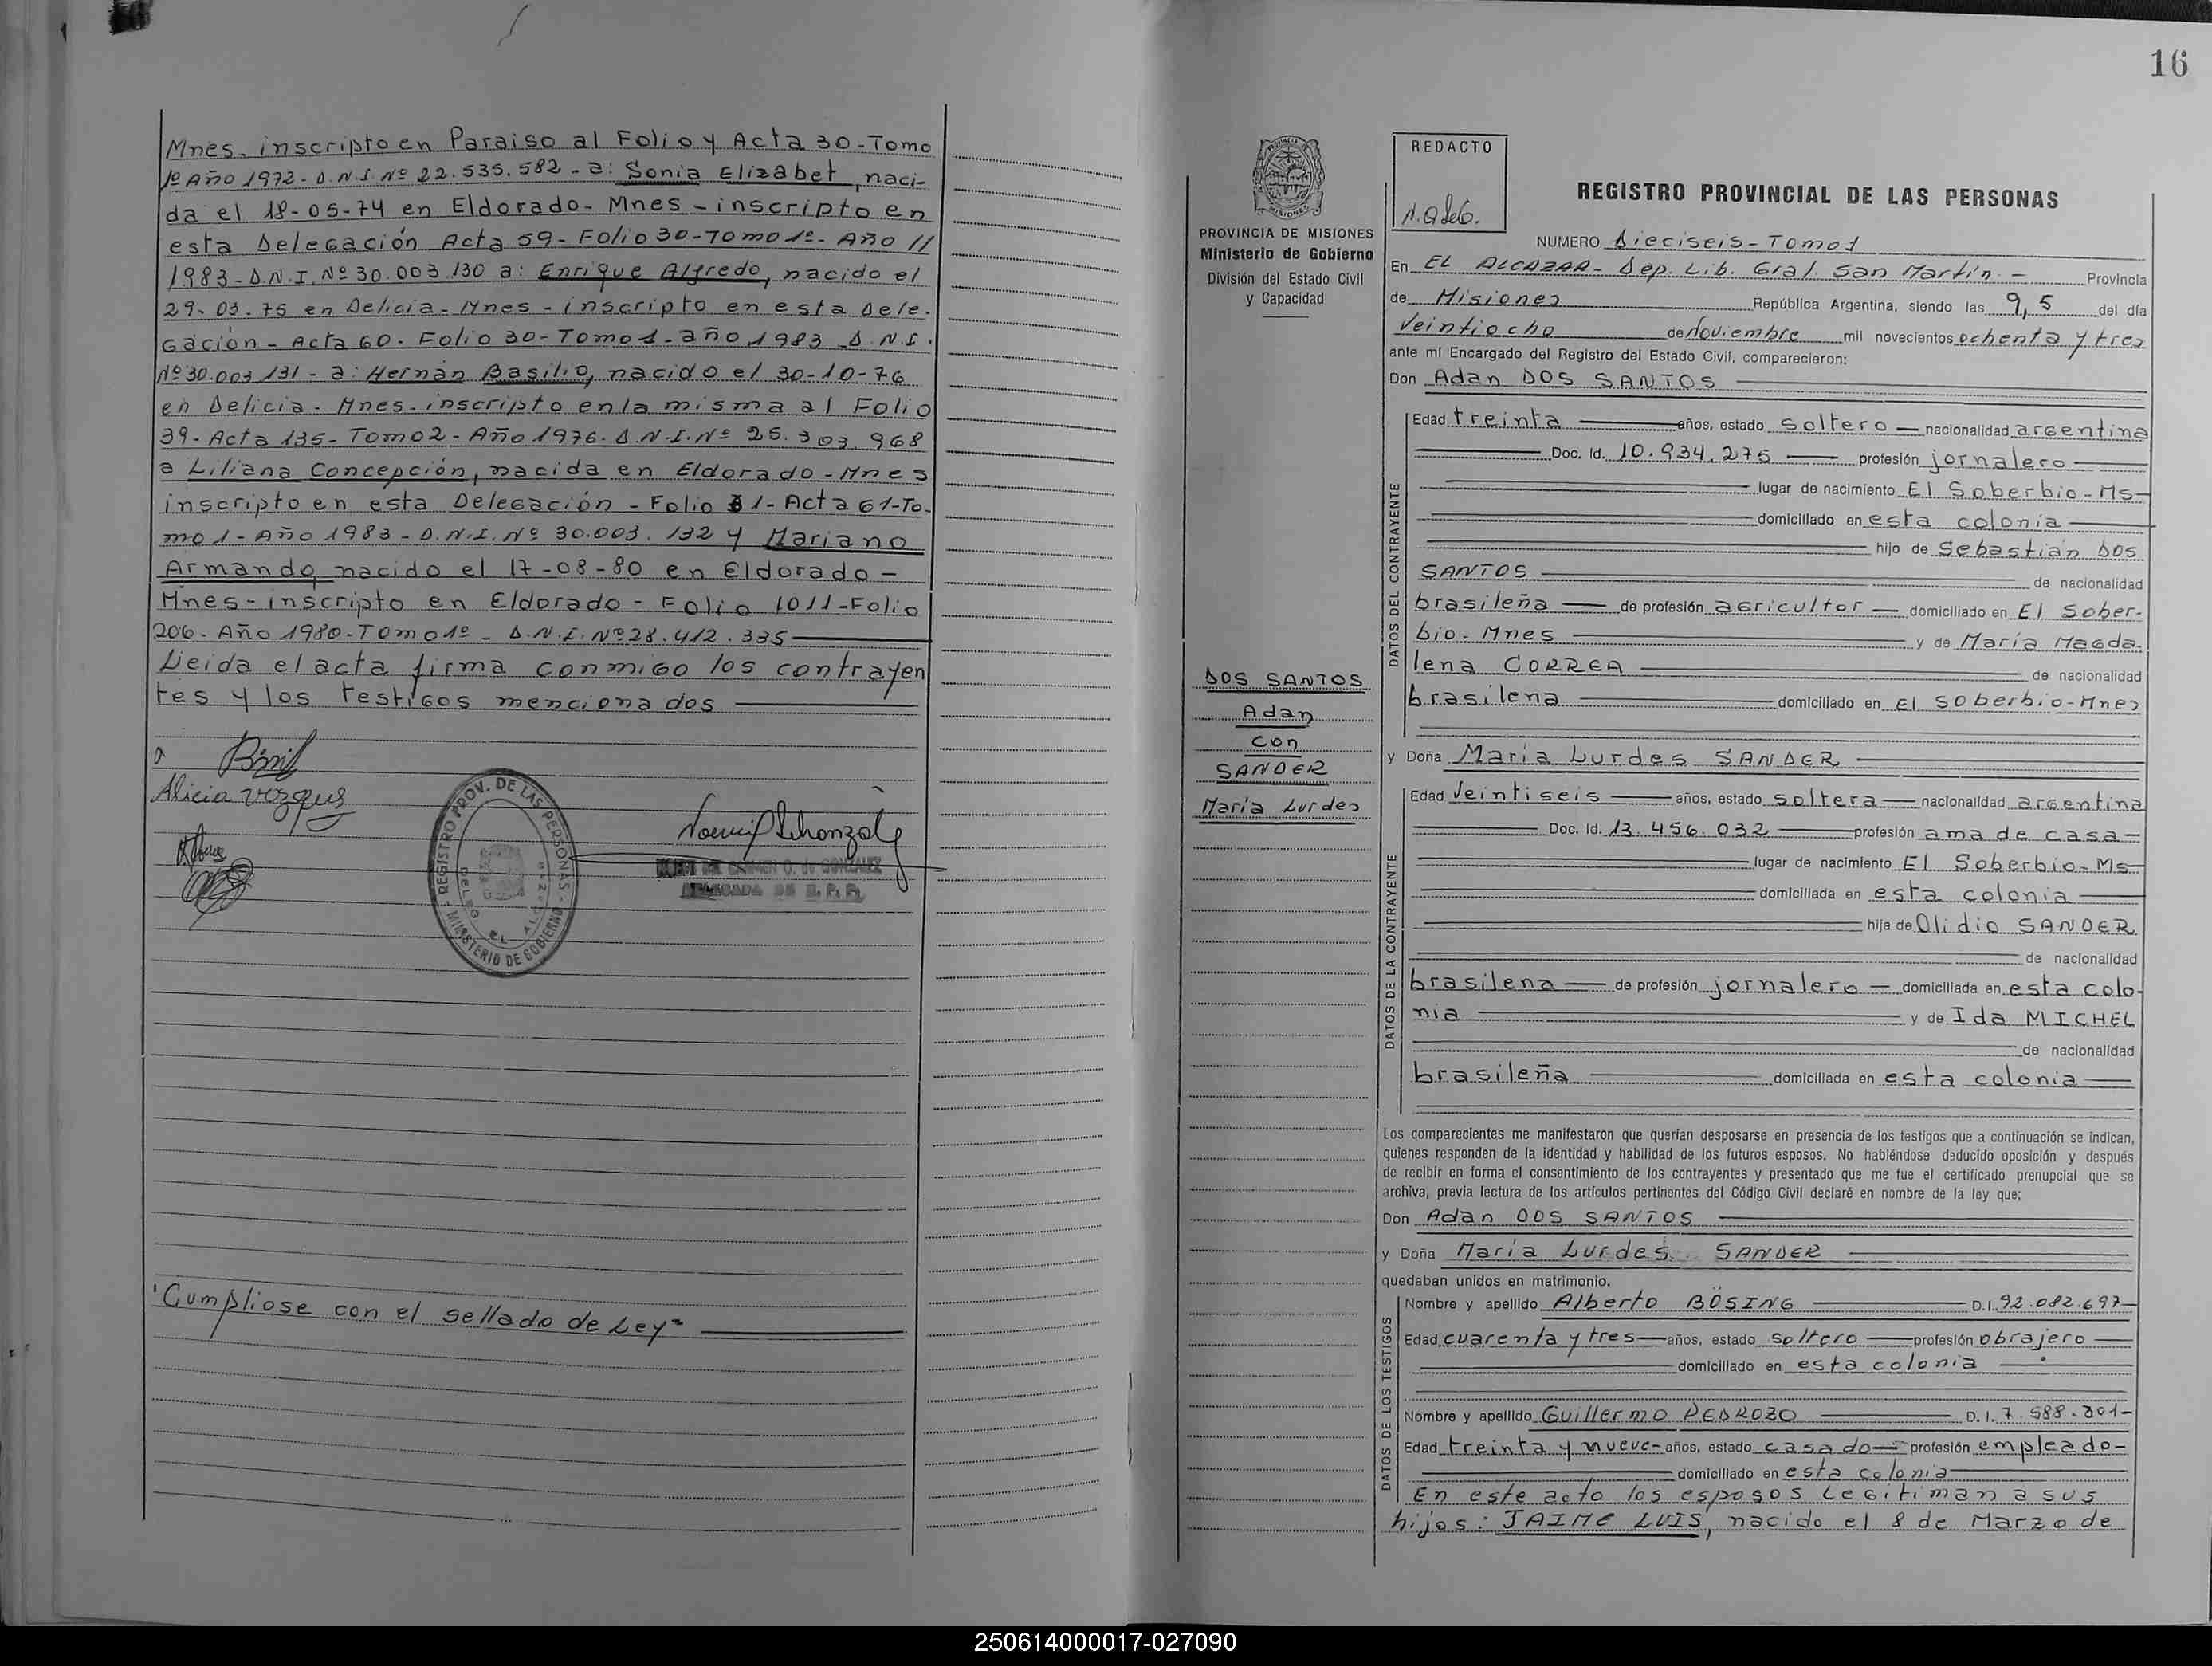 Mnes. inscripto en Paraiso al Folio y Acta 30-Tomo
1º Año 1972- D.N.I. Nº 22.535.582 - a: Sonia Elizabet, naci-
da el 18-05-74 en Eldorado- Mnes - inscripto en
esta Delegación Acta 59- Folio 30-Tomo 1º- Año //
1983- D.N.I. Nº 30.003.130 a: Enrique Alfredo, nacido el
29-03-75 en Delicia- Mnes - inscripto en esta Dele-
gación - Acta 60- Folio 30-Tomo 1- año 1983 D.N.I.
Nº 30.003.131 - a: Hernán Basilio, nacido el 30-10-76
en Delicia- Mnes. inscripto en la misma al Folio
39- Acta 135- Tomo 2- Año 1976- D.N.I. Nº 25.303.968
a Liliana Concepción, nacida en Eldorado - Mnes
inscripto en esta Delegación - Folio 31- Acta 61-To-
mo 1- Año 1983 - D.N.I. Nº 30.003.132 y Mariano
Armando nacido el 17-08-80 en Eldorado -
Mnes- inscripto en Eldorado - Folio 1011-Folio
206- Año 1980-Tomo 1º - D.N.I. Nº 28.412.335
Leida el acta firma conmigo los contrayen
tes y los testigos mencionados
Alicia Vezques
REGISTRO PROV. DE LAS PERSONAS - MINISTERIO DE GOBIERNO
DELEG. EL ALCAZAR
DEL CARMEN O. de GONZALEZ
DELEGADA DE R. P. P.
Cumpliose con el sellado de Ley"
16
PROVINCIA DE MISIONES
Ministerio de Gobierno
División del Estado Civil
y Capacidad
DOS SANTOS
Adan
con
SANDER
María Lurdes
REDACTO
REGISTRO PROVINCIAL DE LAS PERSONAS
NUMERO Dieciseis - Tomo 1
En EL ALCAZAR- Dep. Lib. Gral. San Martín - Provincia
de Misiones República Argentina, siendo las 9,5 del día
Veintiocho de Noviembre mil novecientos ochenta y tres
ante mí Encargado del Registro del Estado Civil, comparecieron:
Don Adan DOS SANTOS
DATOS DEL CONTRAYENTE
Edad treinta años, estado soltero nacionalidad argentina
Doc. Id. 10.934.275 profesión jornalero
lugar de nacimiento El Soberbio-Ms
domiciliado en esta colonia
hijo de Sebastián DOS
SANTOS de nacionalidad
brasileña de profesión agricultor domiciliado en El Sober-
bio- Mnes y de María Magda-
lena CORREA de nacionalidad
brasilena domiciliado en El Soberbio-Mnes
y Doña María Lurdes SANDER
DATOS DE LA CONTRAYENTE
Edad Veintiseis años, estado soltera nacionalidad argentina
Doc. Id. 13.456.032 profesión ama de casa
lugar de nacimiento El Soberbio-Ms
domiciliada en esta colonia
hija de Olidio SANDER
de nacionalidad
brasilena de profesión jornalero domiciliada en esta colo-
nia y de Ida MICHEL
de nacionalidad
brasileña domiciliada en esta colonia
Los comparecientes me manifestaron que querían desposarse en presencia de los testigos que a continuación se indican,
quienes responden de la identidad y habilidad de los futuros esposos. No habiéndose deducido oposición y después
de recibir en forma el consentimiento de los contrayentes y presentado que me fue el certificado prenupcial que se
archiva, previa lectura de los artículos pertinentes del Código Civil declaré en nombre de la ley que;
Don Adan DOS SANTOS
y Doña María Lurdes SANDER
quedaban unidos en matrimonio.
DATOS DE LOS TESTIGOS
Nombre y apellido Alberto BÖSING D.I. 92.082.697
Edad cuarenta y tres años, estado soltero profesión obrajero
domiciliado en esta colonia
Nombre y apellido Guillermo PEDROZO D. I. 7.588.301
Edad treinta y nueve años, estado casado profesión empleado
domiciliado en esta colonia
En este acto los esposos Legitiman a sus
hijos: JAIME LUIS, nacido el 8 de Marzo de
250614000017-027090